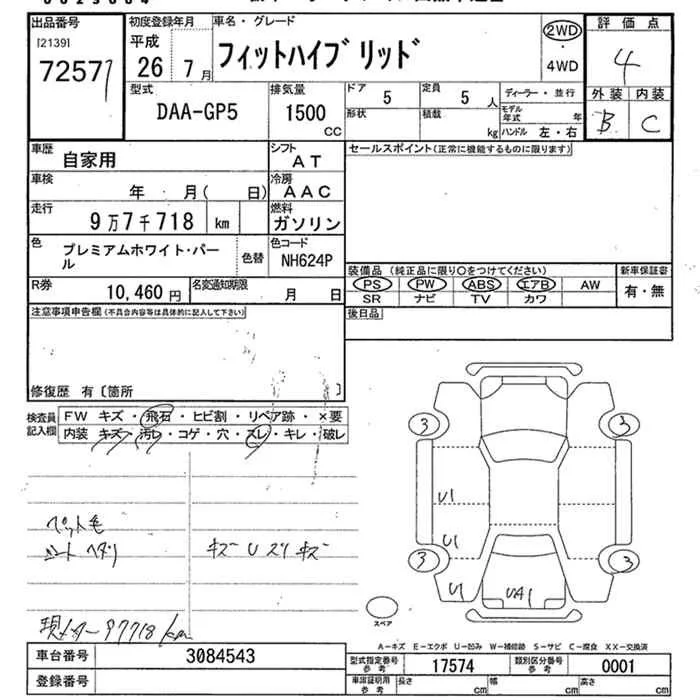 出品番号 初度登録年月 車名・グレード 評 価 点
[2139] 7257 平成 26 7月 フィットハイブリッド 2WD ・ 4WD 4
型式 排気量 ドア 定員 ディーラー・並行 外装 内装
DAA-GP5 1500 CC 5 5 人 モデル年式 年 B C
形状 積載 kg ハンドル 左・右
車歴 自家用 シフト AT セールスポイント(正常に機能するものに限ります)
車検 年 月( 日) 冷房 AAC
走行 9万7千718 km 燃料 ガソリン
色 プレミアムホワイト・パール 色替 色コード NH624P
装備品 (純正品に限り○をつけてください) 新車保証書
PS PW ABS エアB AW 有・無
SR ナビ TV カワ
R券 10,460 円 名変通知期限 月 日
後日品
注意事項申告欄(不具合内容等は具体的に記入して下さい)
修復歴 有〔箇所 〕
検査員記入欄 FW キズ・飛石・ヒビ割・リペア跡・×要
内装 キズ・汚レ・コゲ・穴・スレ・キレ・破レ
3 3
U1
U1
3 3
U1 UA1
ペット毛
シートヘタリ キズ U スリキズ
現メーター97718km
スペア
A-キズ E-エクボ U-凹み W-補修跡 S-サビ C-腐食 XX-交換済
車台番号 3084543 型式指定番号 参考 17574 類別区分番号 参考 0001
登録番号 車庫証明用 参考 長さ cm 幅 cm 高さ cm